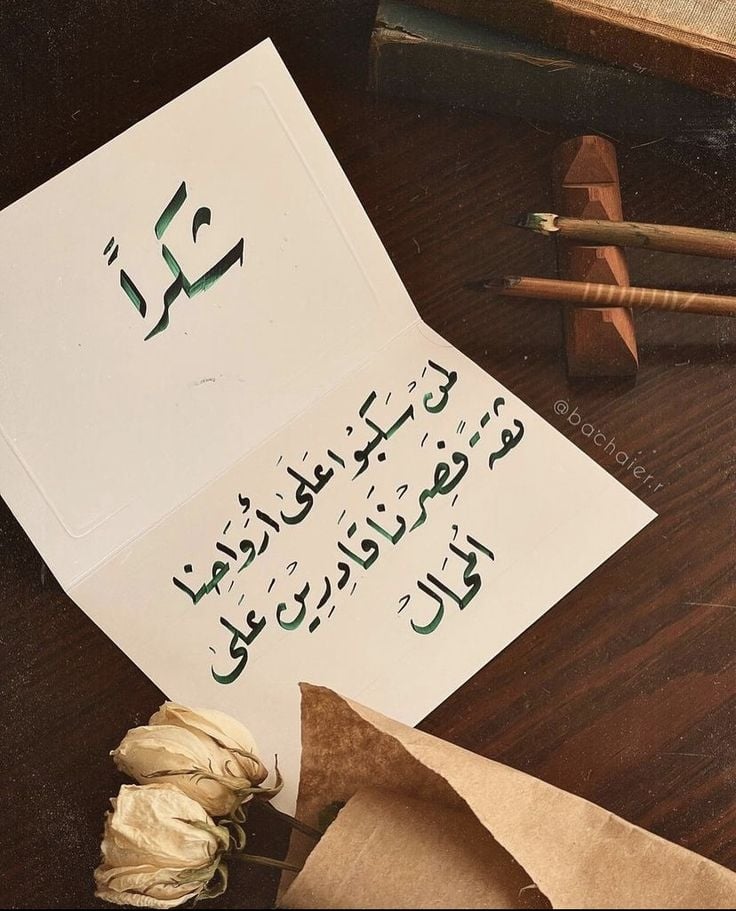 شكراً
لمَنْ سَكَبُوا عَلَىٰ أرْوَاحِنا
ثقةً فَصِرْنَا قَادِرِينْ عَلىٰ
المُحَالْ
@bachaier.r